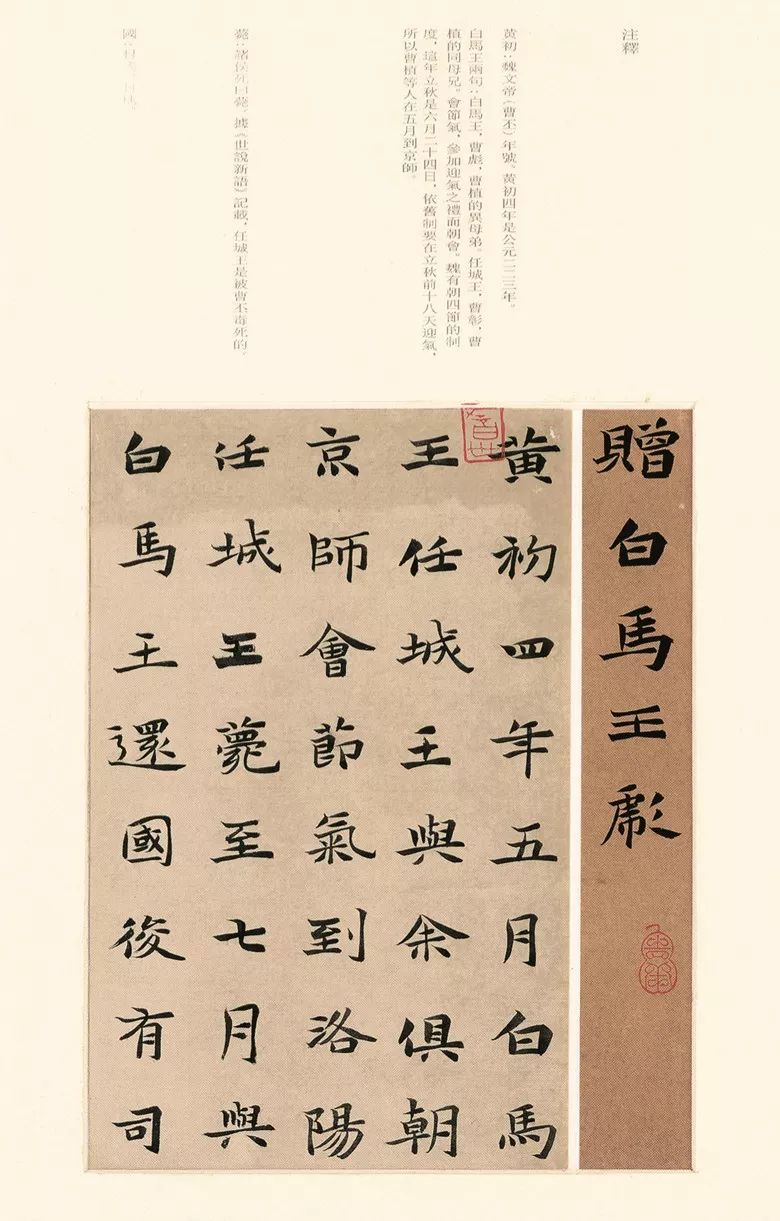 注釋
黄初：魏文帝（曹丕）年號，黄初四年是公元二二三年。
白馬王兩句：白馬王，曹彪，曹植的異母弟。任城王，曹彰，曹
植的同母兄。會節氣，參加迎氣之禮而朝會。魏有朝四節的制
度，這年立秋是六月二十四日，依舊制要在立秋前十八天迎氣，
所以曹植等人在五月到京師。
薨：諸侯死曰薨。據《世說新語》記載，任城王是被曹丕毒死的。
國：
贈白馬王彪
黄初四年五月白馬
王任城王與余俱朝
京師會節氣到洛陽
任城王薨至七月與
白馬王還國後有司